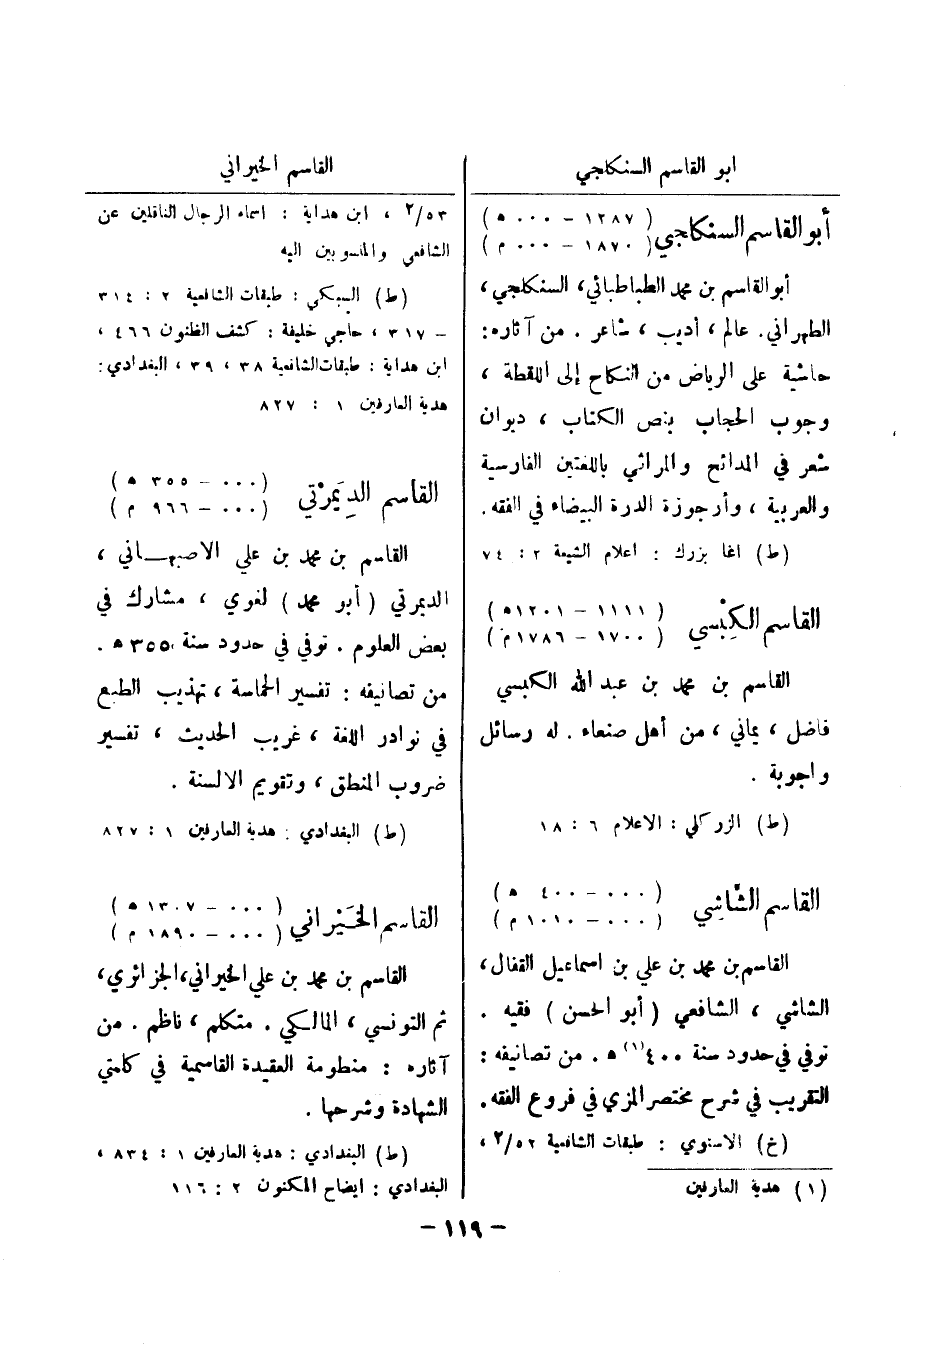 ابو القاسم السنكلجي
أبو القاسم السنكلجي ( ١٢٨٧ – ٠٠٠ ه )
( ١٨٧٠ – ٠٠٠ م )
أبو القاسم بن محمد الطباطبائي، السنكلجي،
الطهراني. عالم ، أديب ، شاعر . من آثاره:
حاشية على الرياض من النكاح إلى اللقطة ،
وجوب الحجاب بنص الكتاب ، ديوان
شعر في المدائح والمراثي باللغتين الفارسية
والعربية ، وأرجوزة الدرة البيضاء في الفقه.
(ط) اغا بزرك : اعلام الشيعة ٢ : ٧٤
القاسم الكِبْسي ( ١١١١ – ١٢٠١ه )
( ١٧٠٠ – ١٧٨٦م )
القاسم بن محمد بن عبد الله الكبسي
فاضل ، يماني ، من أهل صنعاء . له رسائل
واجوبة .
(ط) الزركلي : الاعلام ٦ : ١٨
القاسم الشَّاشِي ( ٠٠٠ – ٤٠٠ ه )
( ٠٠٠ – ١٠١٠ م )
القاسم بن محمد بن علي بن اسماعيل القفال،
الشاشي ، الشافعي ( أبو الحسن ) فقيه .
توفي في حدود سنة ٤٠٠(١) ه . من تصانيفه :
التقريب في شرح مختصر المزي في فروع الفقه.
(خ) الاسنوي : طبقات الشافعية ٥٢/٢ ،
(١) هدية العارفين
القاسم الخيراني
٢/٥٣ ، ابن هداية : اسماء الرجال الناقلين عن
الشافعي والمنسوبين اليه
(ط) السبكي : طبقات الشافعية ٢ : ٣١٤
– ٣١٧ ، حاجي خليفة : كشف الظنون ٤٦٦ ،
ابن هداية : طبقات الشافعية ٣٨ ، ٣٩ ، البغدادي:
هدية العارفين ١ : ٨٢٧
القاسم الدِيَمِرْتي ( ٠٠٠ – ٣٥٥ ه )
( ٠٠٠ – ٩٦٦ م )
القاسم بن محمد بن علي الاصبهـاني ،
الديمرتي ( أبو محمد ) لغوي ، مشارك في
بعض العلوم . توفي في حدود سنة ٣٥٥ه .
من تصانيفه : تفسير الحماسة ، تهذيب الطبع
في نوادر اللغة ، غريب الحديث ، تفسير
ضروب المنطق ، وتقويم الالسنة .
(ط) البغدادي : هدية العارفين ١ : ٨٢٧
القاسم الخَيْراني ( ٠٠٠ – ١٣٠٧ ه )
( ٠٠٠ – ١٨٩٠ م )
القاسم بن محمد بن علي الخيراني،الجزائري،
ثم التونسي ، المالكي . متكلم ، ناظم . من
آثاره : منظومة العقيدة القاسمية في كلمتي
الشهادة وشرحها .
(ط) البغدادي : هدية العارفين ١ : ٨٣٤ ،
البغدادي : ايضاح المكنون ٢ : ١١٦
– ١١٩ –